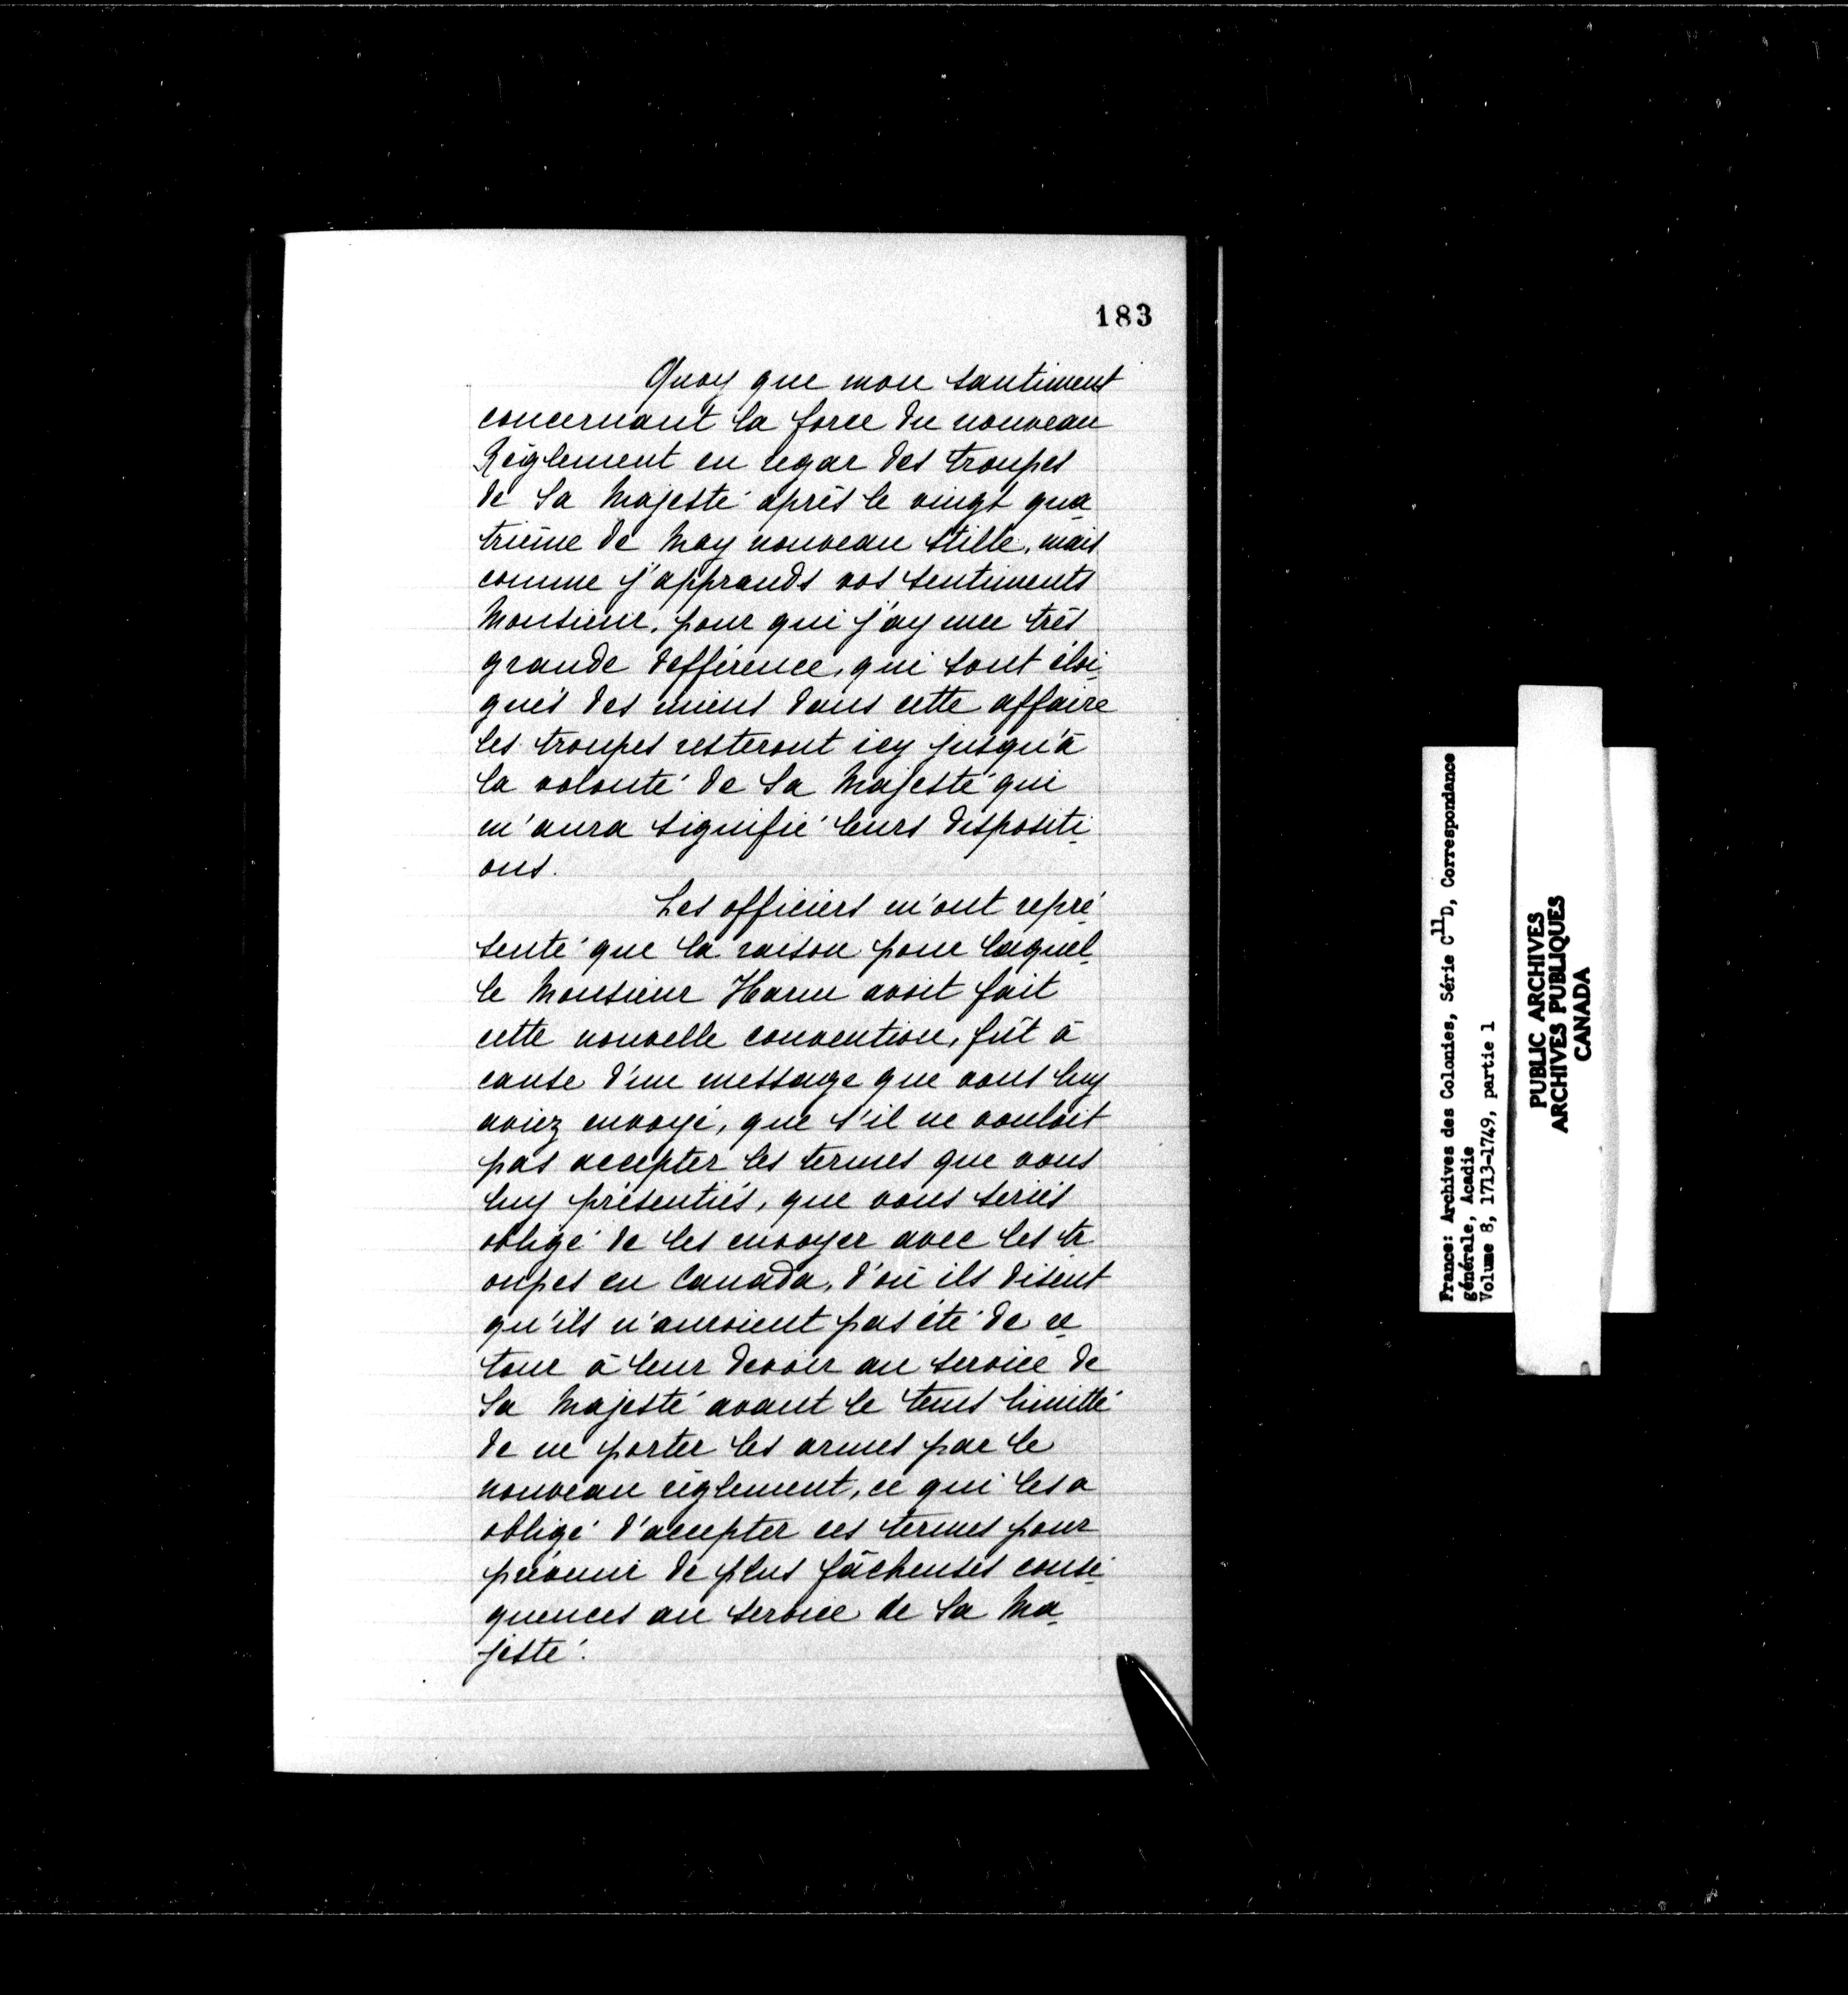 183
Quoy que mon santiment
concernant la force du nouveau
Règlement en regar des troupes
de Sa Majesté après le vingt qua
trième de May nouveau stille, mais
comme j'apprands vos sentiments
Monsieur, pour qui j'ay une très
grande defférence, qui sont éloi
gnés des miens dans cette affaire
les troupes resteront icy jusqu'à
la volonté de Sa Majesté qui
m'aura signifié leurs dispositi
ons.
Les officiers m'ont repré
senté que la raison pour laquel
le Monsieur Harm avoit fait
cette nouvelle convention, fût à
cause d'un message que vous luy
aviez envoyé, que s'il ne vouloit
pas accepter les termes que vous
luy présentiés, que vous seriés
obligé de les envoyer avec les tr
oupes en Canada, d'où ils disent
qu'ils n'auroient pas été de re
tour à leur devoir au service de
Sa Majesté avant le tems limitté
de ne porter les armes par le
nouveau règlement, ce qui les a
obligé d'accepter ces termes pour
prévenir de plus fâcheuses consé
quences au service de Sa Ma
jesté.
France: Archives des Colonies, Série C11D, Correspondance
générale, Acadie
Volume 8, 1713-1749, partie 1
PUBLIC ARCHIVES
ARCHIVES PUBLIQUES
CANADA